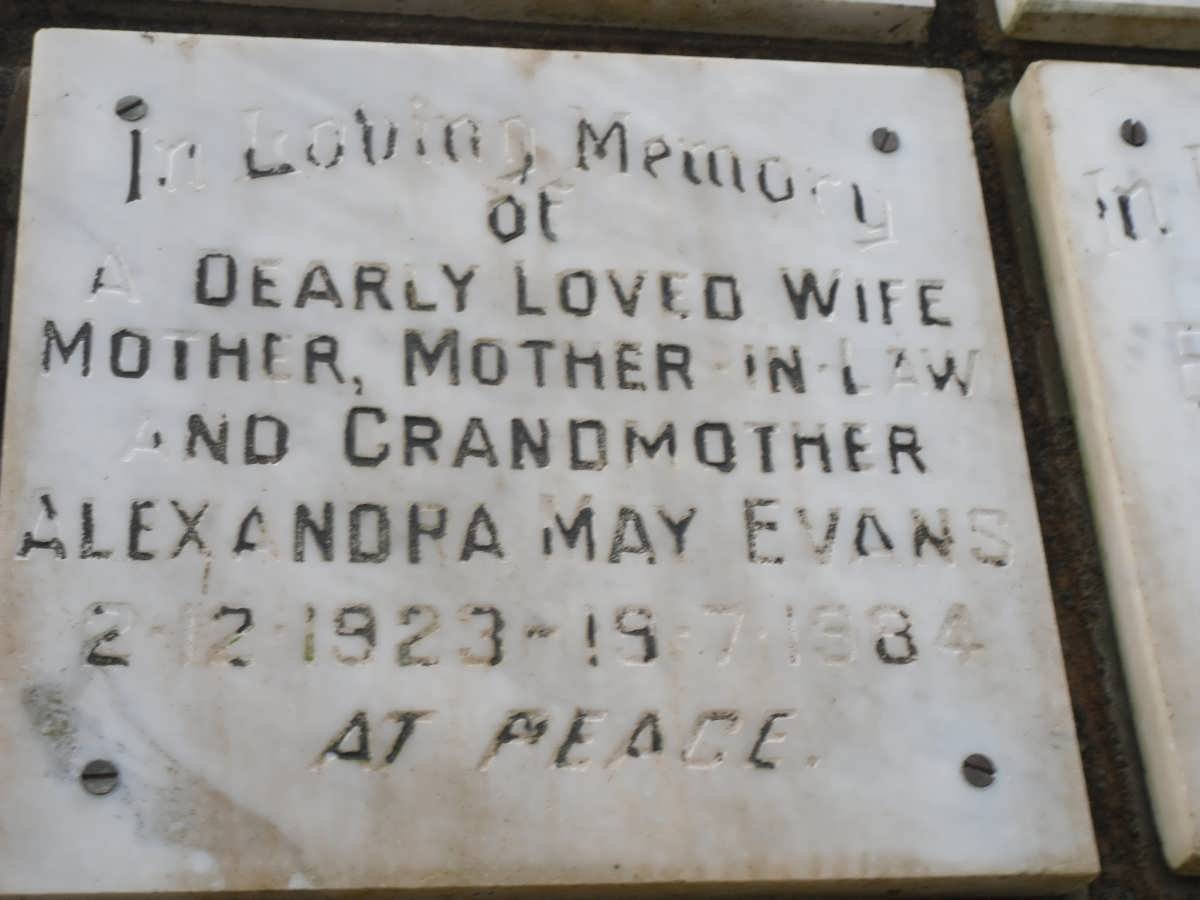 In Loving Memory
of
A DEARLY LOVED WIFE
MOTHER, MOTHER-IN-LAW
AND GRANDMOTHER
ALEXANDRA MAY EVANS
2-12-1923-19-7-1984
AT PEACE.
In